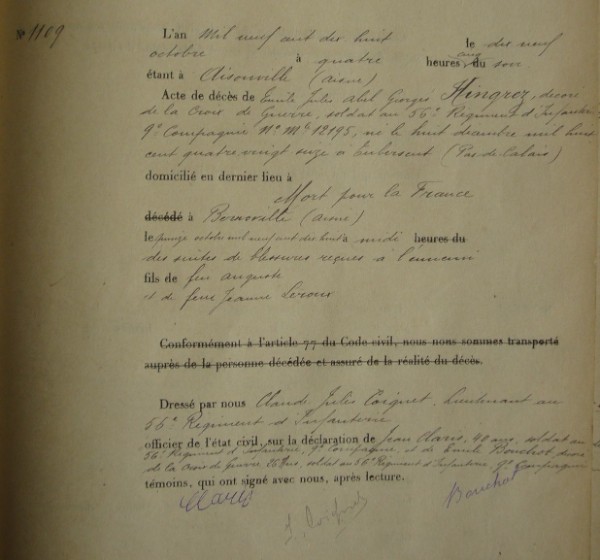 N° 1109
L'an Mil neuf cent dix huit le dix neuf
octobre à quatre heures du soir
étant à Aisonville (Aisne)
Acte de décès de Emile Jules Abel Georges Hingrez, décoré
de la Croix de Guerre, soldat au 56e Regiment d'Infanterie
9e Compagnie N° Mle 12195, né le huit décembre mil huit
cent quatre-vingt seize à Enbersent (Pas de Calais)
domicilié en dernier lieu à
Mort pour la France
décédé à Bernoville (Aisne)
le quinze octobre mil neuf cent dix huit à midi heures du
des suites de blessures reçues à l'ennemi
fils de feu Auguste
et de feue Jeanne Leroux
Conformément à l'article 77 du Code civil, nous nous sommes transporté
auprès de la personne décédée et assuré de la réalité du décès.
Dressé par nous Claude Jules Coignet, Lieutenant au
56e Regiment d'Infanterie
officier de l'état civil, sur la déclaration de Jean Claris, 40 ans, soldat au
56e Regiment d'Infanterie, 9e Compagnie, et de Emile Bouchot, décoré
de la Croix de Guerre, 26 ans, soldat au 56e Regiment d'Infanterie, 9e Compagnie
témoins, qui ont signé avec nous, après lecture.
Claris
Bouchot